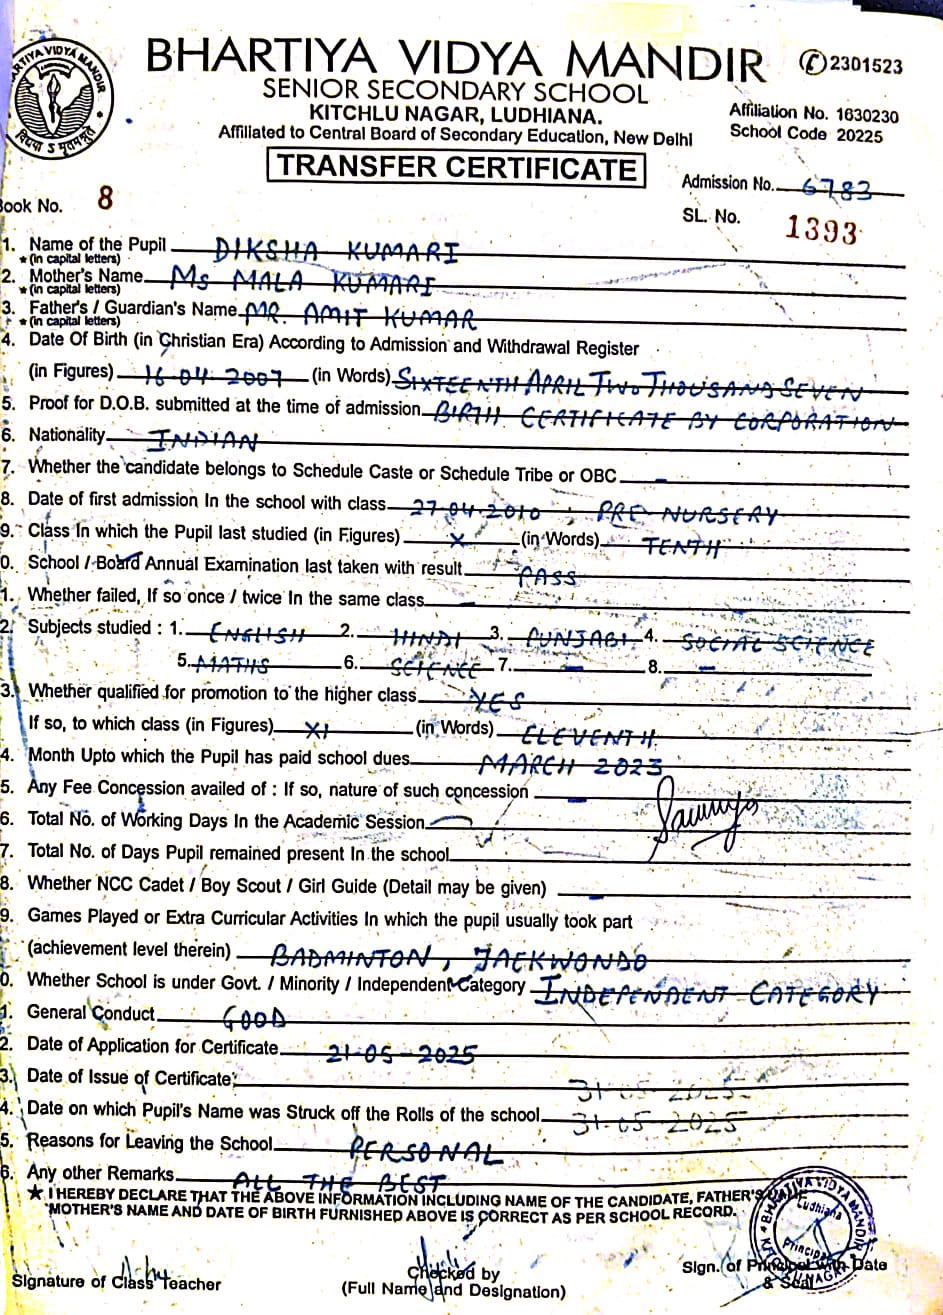 BHARTIYA VIDYA MANDIR
✆2301523
SENIOR SECONDARY SCHOOL
KITCHLU NAGAR, LUDHIANA.
Affiliation No. 1630230
Affiliated to Central Board of Secondary Education, New Delhi
School Code 20225
TRANSFER CERTIFICATE
Admission No. 6783
Book No. 8
SL. No. 1393
1. Name of the Pupil DIKSHA KUMARI
★(in capital letters)
2. Mother's Name Ms MALA KUMARI
★(in capital letters)
3. Father's / Guardian's Name MR. AMIT KUMAR
★(in capital letters)
4. Date Of Birth (in Christian Era) According to Admission and Withdrawal Register
(in Figures) 16-04-2007 (in Words) SIXTEENTH APRIL TWO THOUSAND SEVEN
5. Proof for D.O.B. submitted at the time of admission BIRTH CERTIFICATE BY CORPORATION
6. Nationality INDIAN
7. Whether the candidate belongs to Schedule Caste or Schedule Tribe or OBC —
8. Date of first admission In the school with class 27-04-2010 , PRE-NURSERY
9. Class In which the Pupil last studied (in Figures) X (in Words) TENTH
0. School / Board Annual Examination last taken with result PASS
1. Whether failed, If so once / twice In the same class —
2. Subjects studied : 1. ENGLISH 2. HINDI 3. PUNJABI 4. SOCIAL SCIENCE
5. MATHS 6. SCIENCE 7. — 8. —
3. Whether qualified for promotion to the higher class YES
If so, to which class (in Figures) XI (in Words) ELEVENTH
4. Month Upto which the Pupil has paid school dues MARCH 2023
5. Any Fee Concession availed of : If so, nature of such concession —
6. Total No. of Working Days In the Academic Session —
7. Total No. of Days Pupil remained present In the school
8. Whether NCC Cadet / Boy Scout / Girl Guide (Detail may be given) —
9. Games Played or Extra Curricular Activities In which the pupil usually took part
(achievement level therein) BADMINTON, TAEKWONDO
0. Whether School is under Govt. / Minority / Independent Category INDEPENDENT CATEGORY
1. General Conduct GOOD
2. Date of Application for Certificate 21-05-2025
3. Date of Issue of Certificate 31-05-2025
4. Date on which Pupil's Name was Struck off the Rolls of the school 31-05-2025
5. Reasons for Leaving the School PERSONAL
6. Any other Remarks ALL THE BEST
★ I HEREBY DECLARE THAT THE ABOVE INFORMATION INCLUDING NAME OF THE CANDIDATE, FATHER'S NAME
MOTHER'S NAME AND DATE OF BIRTH FURNISHED ABOVE IS CORRECT AS PER SCHOOL RECORD.
Signature of Class Teacher
Checked by
(Full Name and Designation)
Sign. of Principal with Date
& Seal